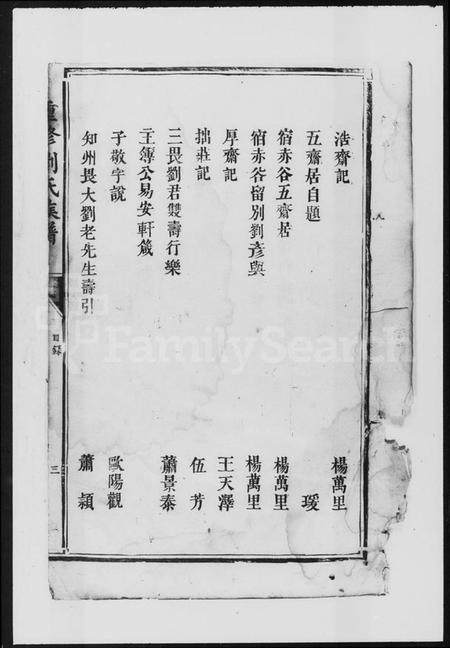 浩齋記 楊萬里
五齋居自題 瑗
宿赤谷五齋居 楊萬里
宿赤谷留別劉彥與 楊萬里
厚齋記 王天澤
拙莊記 伍芳
三畏劉君雙壽行樂 蕭景泰
主簿公易安軒箴
子敬字說 歐陽觀
知州畏大劉老先生壽引 蕭潁
重修劉氏族譜
目錄
三
FamilySearch